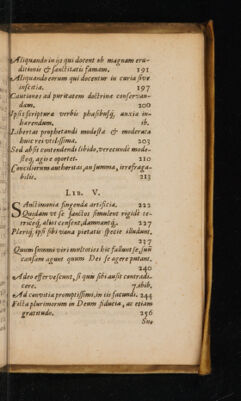 Aliquando in ijs qui docent ob magnam eru-
ditionis & sanctitatis famam. 191
Aliquando eorum qui docentur in curia sive
inscitia. 197
Cautiones ad puritatem doctrinæ conservan-
dam. 200
Ipsis scripturæ verbis phasibusq́; anxia in-
hærendum. ib.
Libertas prophetandi modesta & moderata
huic rei utilissima. 203
Sed absit contendendi libido, verecundè mode-
stèq́; agi re oportet. 210
Conciliorum authoritas, an summa, irrefraga-
bilis. 213
LIB. V.
Sanctimonia fingenda artificia. 222
Quidam ut se sanctos simulent rigidè te-
tricèq́; alios censent, damnantq́; 227
Pleriq́; ipsi sibi vana pietatis specie illudunt.
237
Quam summi viri moltoties hic falluntse, suā
causam agunt quum Dei se agere putant.
240
Adeò effervescunt, si quis sibi ausit contradi-
cere. 7. abib.
Ad convitia promptissimi, in iis facundi. 244
Ficta plurimorum in Deum fiducia, ac etiam
gratitudo. 256
Suo